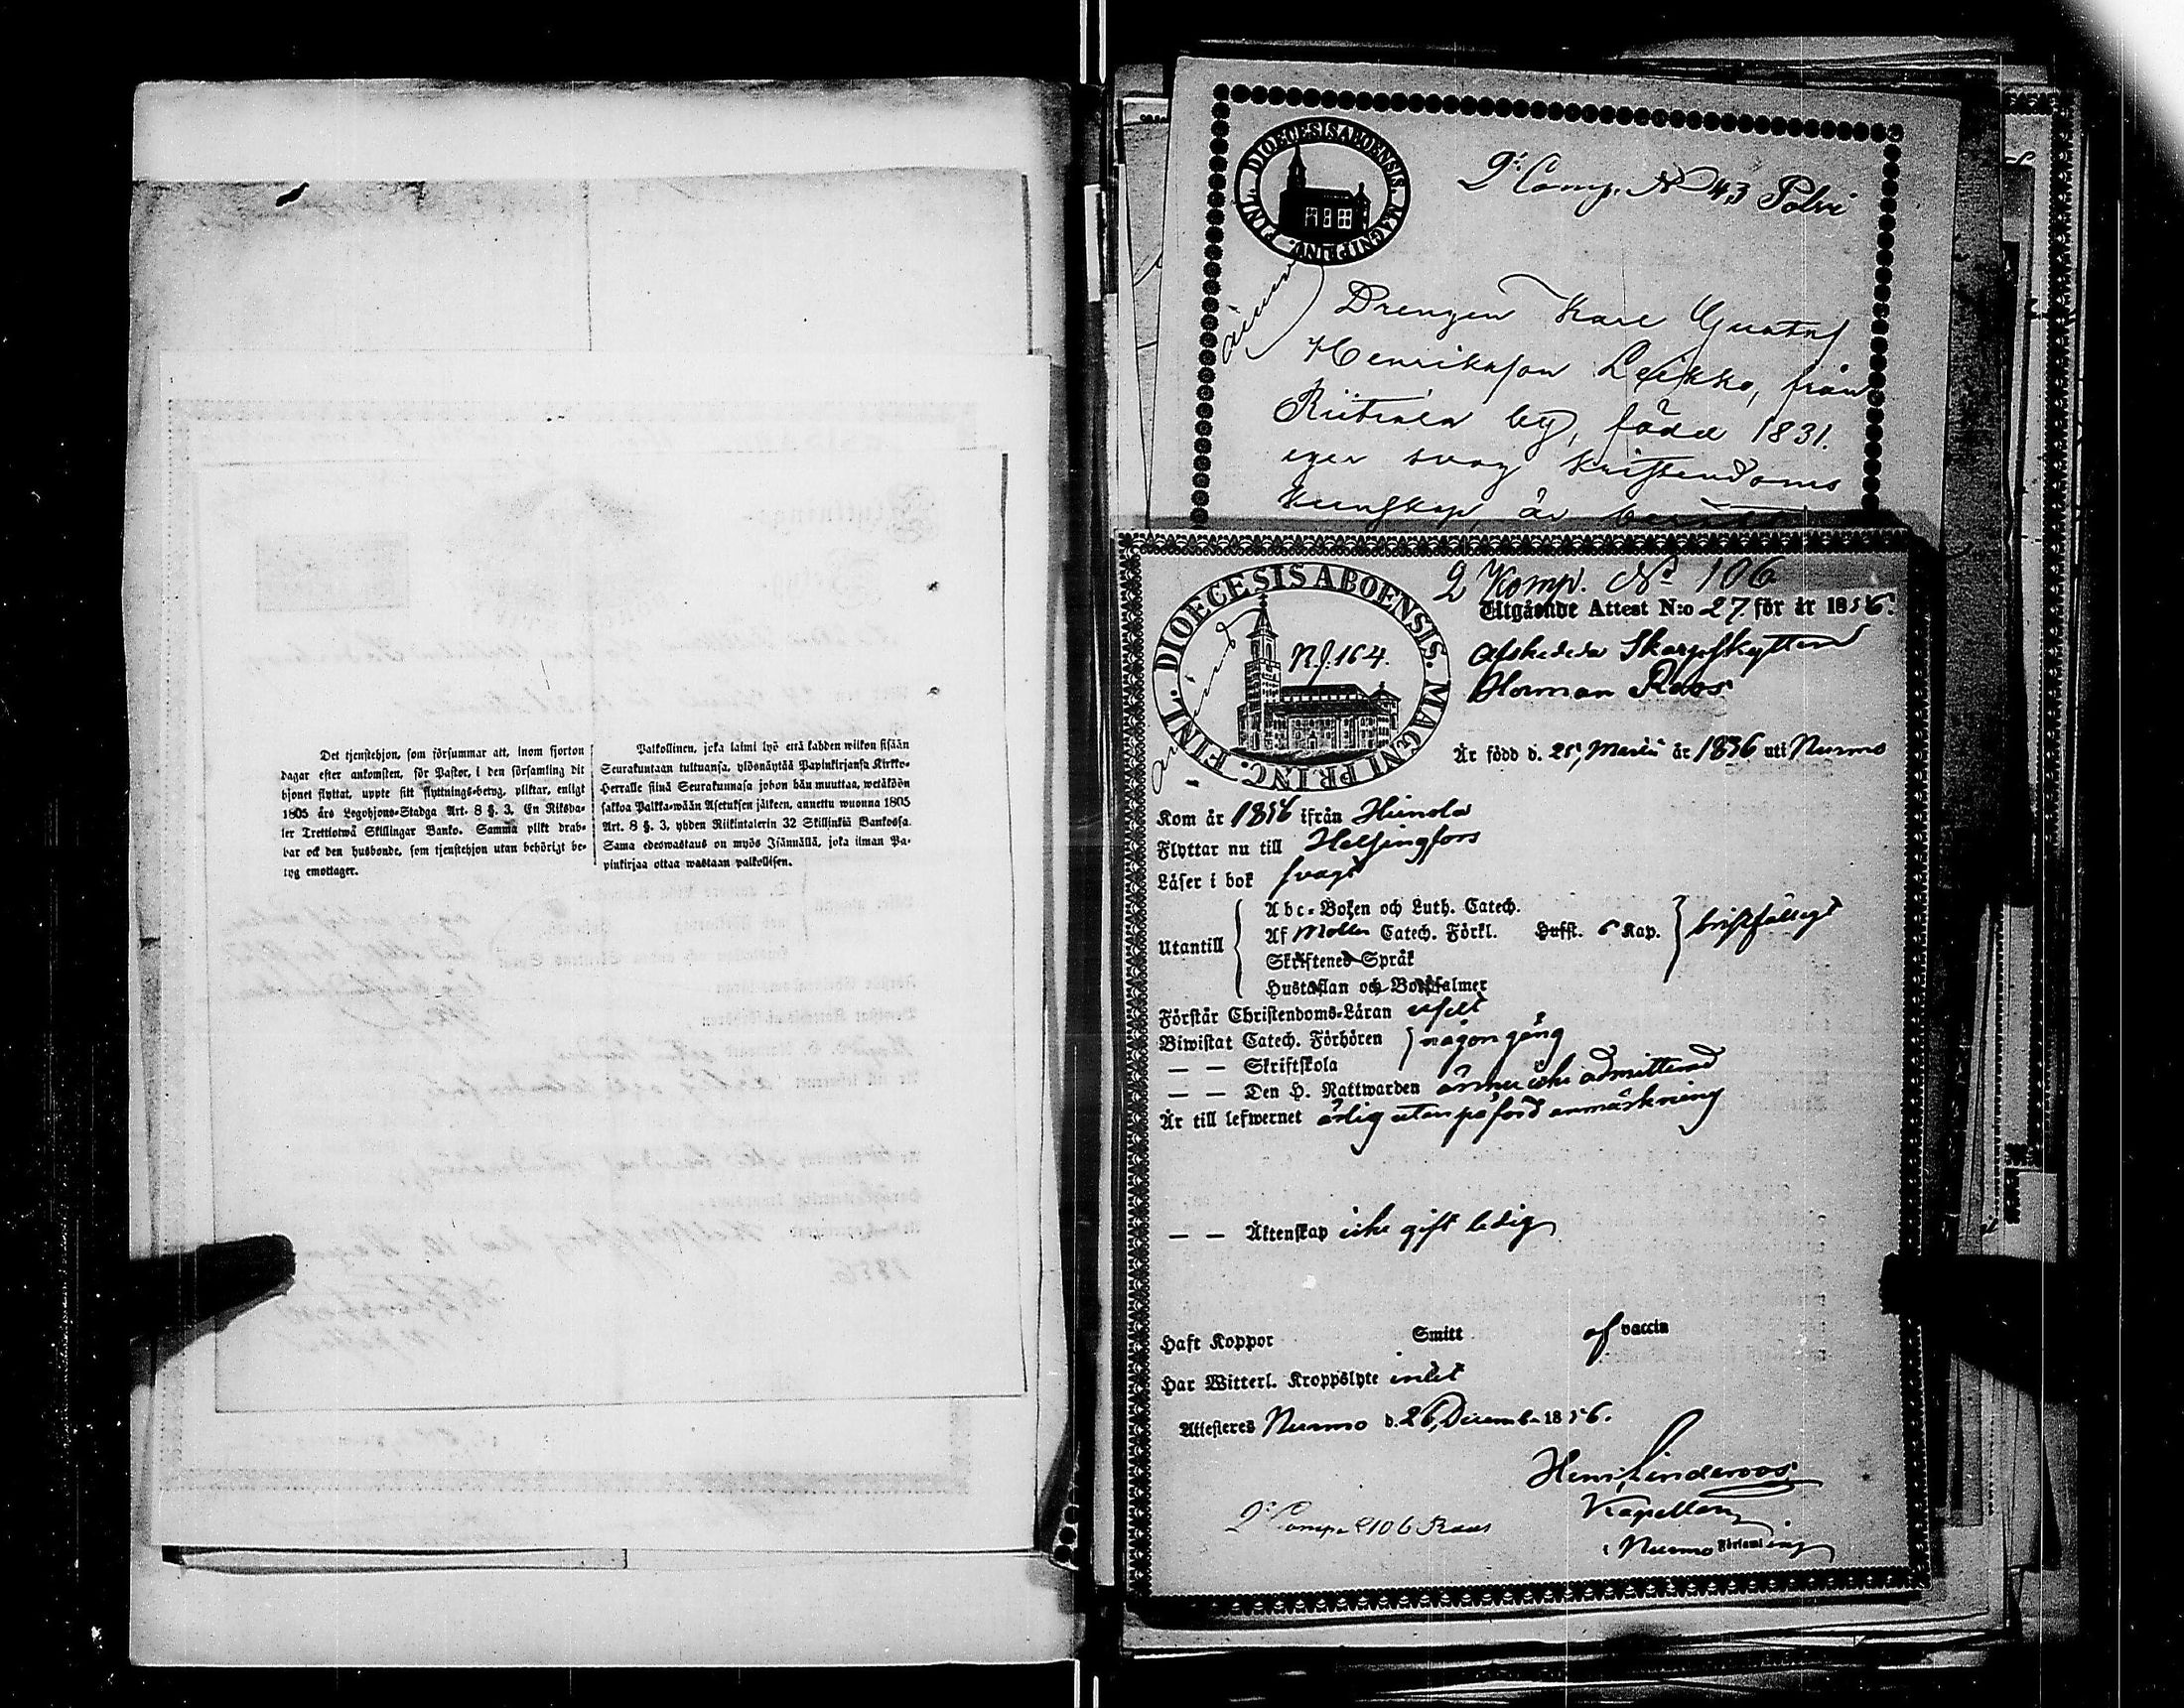 Det tjenstehjon, som försummar att, inom fjorton
dagar efter ankomsten, för Pastor, i den församling dit
hjonet flyttat, uppte sitt flyttnings-betyg, pliktar, enligt
1805 års Legohjons-Stadga Art. 8 §. 3, En Riksda-
ler Trettiotwå Skillingar Banko. Samma plikt drab-
bar ock den husbonde, som tjenstehjon utan behörigt be-
tyg emottager.
Palkollinen, joka laimi lyö että kahden wiikon sisään
Seurakuntaan tultuansa, ylösnäyttää Papinkirjansa Kirkko-
Herralle siinä Seurakunnasa johon hän muuttaa, wetäköön
sakkoa Palkka-wään Asetuksen jälkeen, annettu wuonna 1805
Art. 8 §. 3, yhden Riikintalerin 32 Skillinkiä Bankossa.
Sama edeswastaus on myös Isännällä, joka ilman Pa-
pinkirjaa ottaa wastaan palkollisen.
DIOECESIS ABOENSIS. MAGNI PRINC. FINL.
2:a Comp. No 43 Polvi
Drengen Karl Gustaf
Henriksson Leikko, från
by, född 1831.
eger svag kristendoms
kunskap, är
DIOECESIS ABOENSIS. MAGNI PRINC. FINL.
N.J. 164.
2 Komp. No 106
Utgående Attest N:o 27 för år 1856.
Afskedade Skarpskytten
Herman Raas
Är född d. 25 Martii år 1836 uti Nurmo
Kom år 1856 ifrån Heinola
Flyttar nu till Helsingfors
Läser i bok svagt
Utantill
Abc-Boken och Luth. Catech.
Af Möller Catech. Förkl. Hufst. 6 Kap. bristfälligt
Skriftenes Språk
Hustaflan och Botpsalmer
Förstår Christendoms-Läran uselt
Biwistat Catech. Förhören någon gång
— — Skriftskola
— — Den H. Nattwarden ännu icke admitterad
Är till lefwernet ärlig utan påförd anmärkning
— — Äktenskap icke gift ledig
Haft Koppor Smitt af vaccin
Har Witterl. Kroppslyte intet
Attesteres Nurmo d. 26 Decemb. 1856.
Henr. Linderoos
Kapellan
i Nurmo Församling
2:a Comp. No 106 Raas